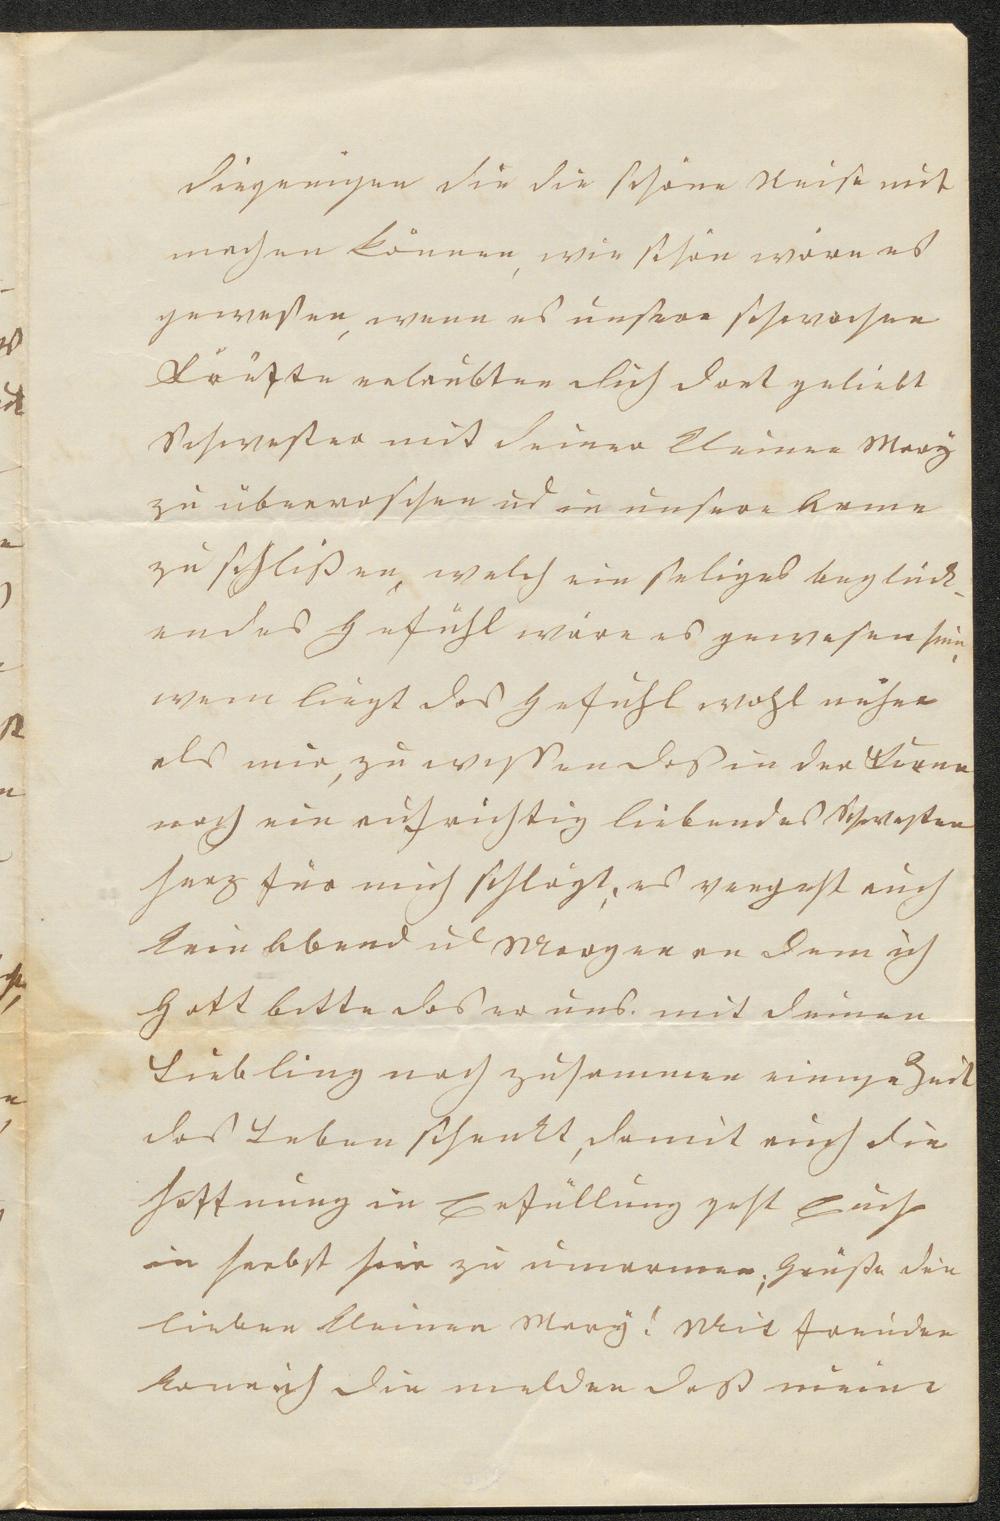 diejenigen die die schöne Reise mit
machen können, wie schön wäre es
gewesen, wenn es unsere schwachen
Kräfte erlaubten dich dort geliebt
Schwester mit deiner kleinen Mary
zu überraschen ud in unsere Arme
zu schlißen, welch ein seliges beglück-
endes Gefühl wäre es gewesen
wem liegt das Gefühl wohl näher
als mir, zu wissen daß in der Ferne
noch ein aufrichtig liebendes Schwester
herz für mich schlägt, es vergeht auch
kein Abend ud Morgen an dem ich
Gott bitte das er uns. mit deinen
Liebling noch zusammen einige Zeit
das Leben schenkt, damit auch die
Hoffnung in Erfüllung geht Euch
in herbst hier zu umarmen, Grüße die
lieben kleinen Mary! Mit freuden
kann ich dir melden daß meine